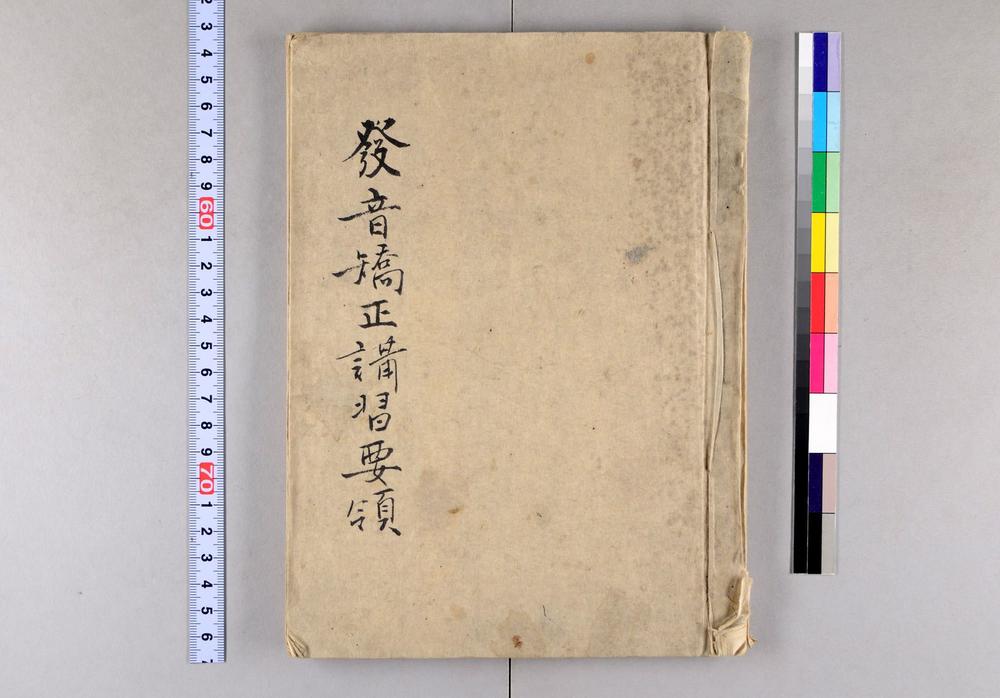 發音矯正講習要領
2
3
4
5
6
7
8
9
60
1
2
3
4
5
6
7
8
9
70
1
2
3
4
5
6